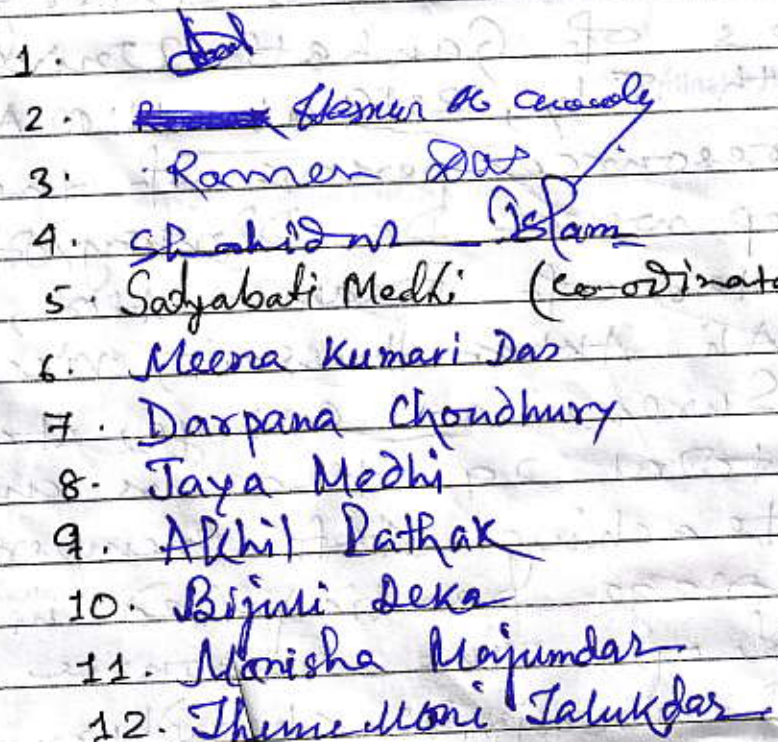 1.
2.
3. Ramen Das
4. Shahidul Islam
5. Satyabati Medhi (Co-ordinato
6. Meena Kumari Das
7. Darpana Choudhury
8. Jaya Medhi
9. Akhil Pathak
10. Bijuli Deka
11. Monisha Majumdar
12. Theme Moni Talukdar